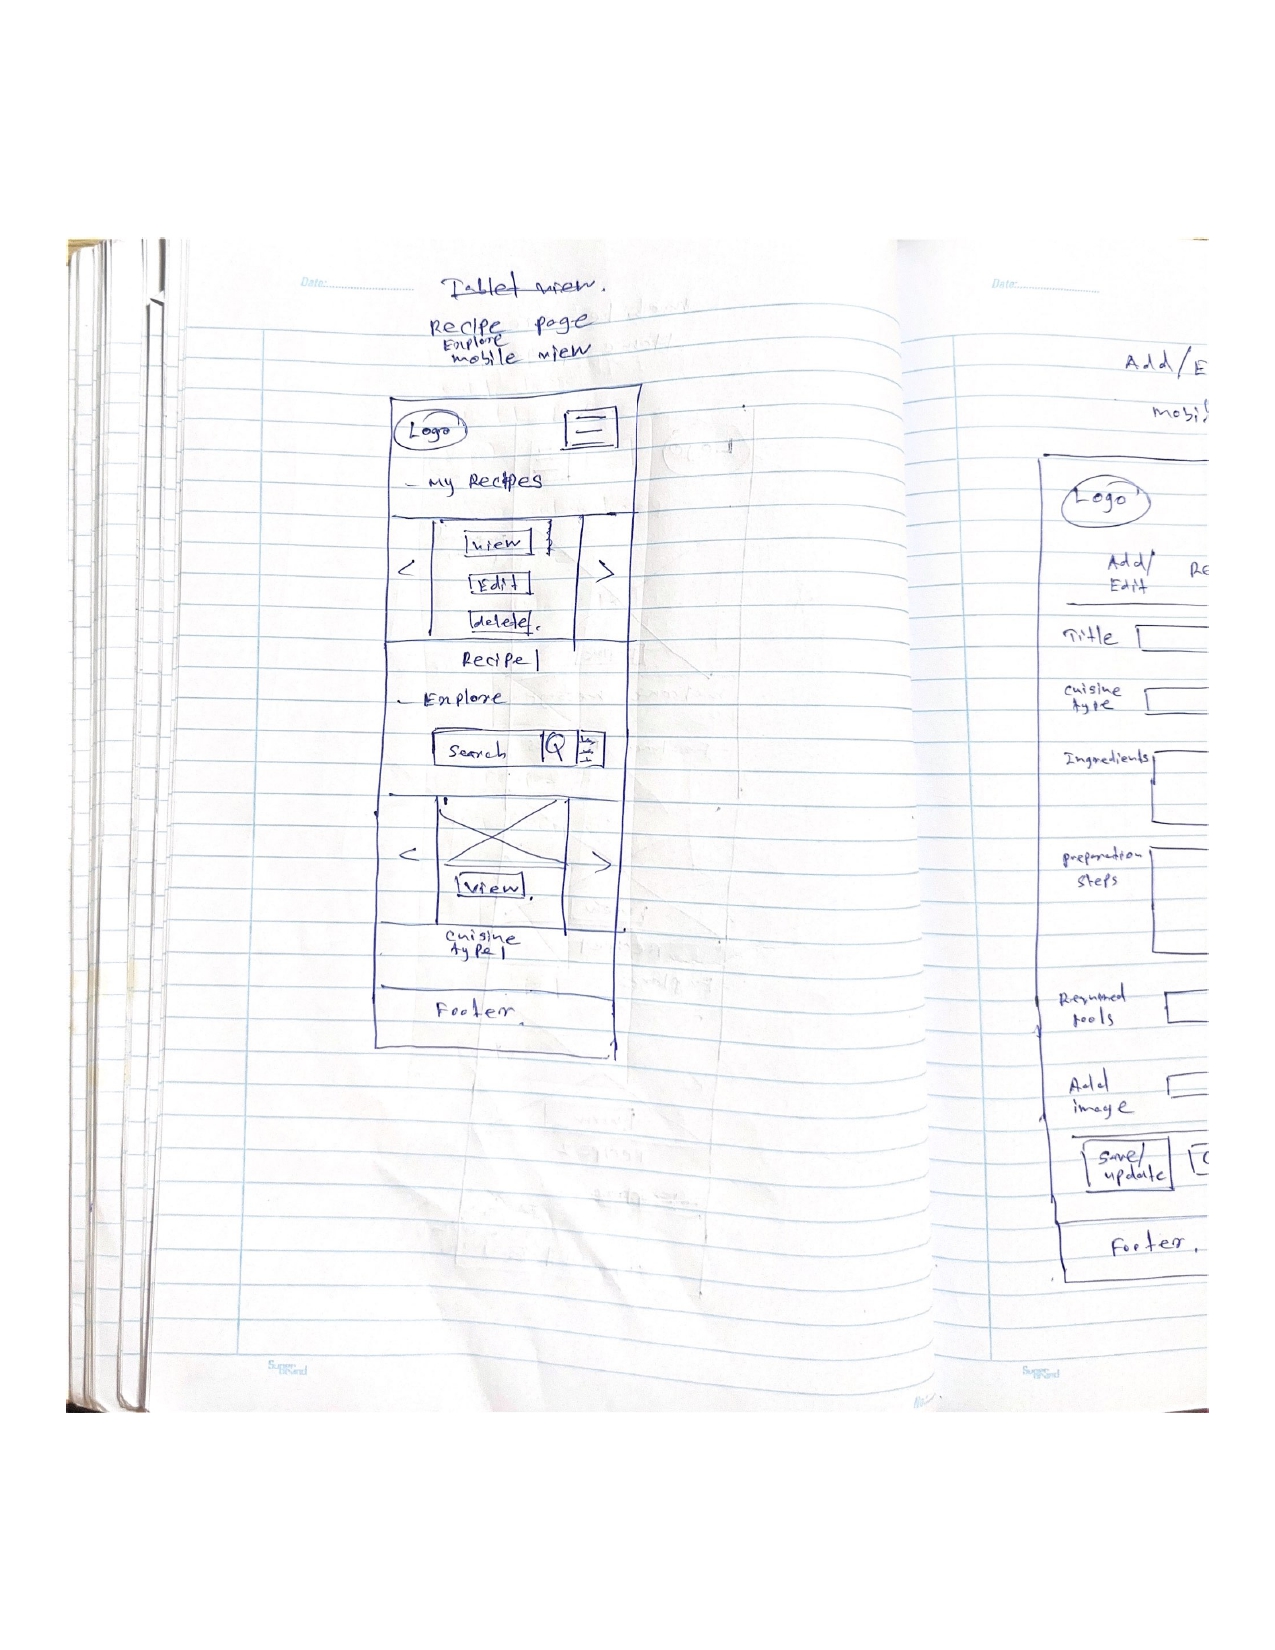 Date:
Tablet view.
Recipe page
Explore
mobile view
Logo
- My Recipes
<
view
Edit
delete.
>
Recipe 1
- Explore
Search
<
view
>
cuisine
type 1
Footer.
Super
Brand
Date:
Add/E
Mobi
Logo
Add/
Edit
Re
Title
cuisine
type
Ingredients
preparation
steps
Required
tools
Add
image
Save/
update
C
Footer.
Super
Brand